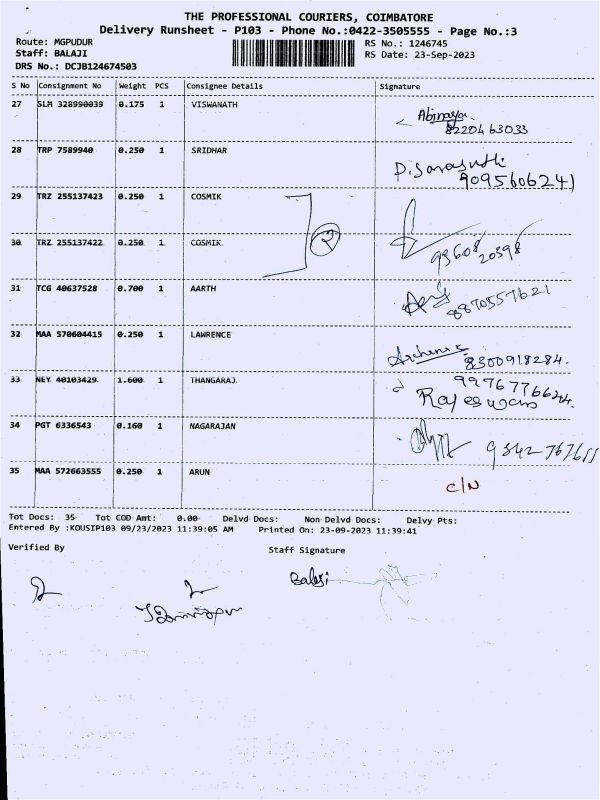 THE PROFESSIONAL COURIERS, COIMBATORE
Delivery Runsheet - P103 - Phone No.:0422-3505555 - Page No.:3
Route: MGPUDUR
RS No.: 1246745
Staff: BALAJI
RS Date: 23-Sep-2023
DRS No.: DCJB124674503
S No Consignment No Weight PCS Consignee Details Signature
27 SLM 328990039 0.175 1 VISWANATH Abinaya
8220463033
28 TRP 7589940 0.250 1 SRIDHAR
9095606241
29 TRZ 255137423 0.250 1 COSMIK
2
30 TRZ 255137422 0.250 1 COSMIK 93608 20398
31 TCG 40637528 0.700 1 AARTH 8870557621
32 MAA 570604415 0.250 1 LAWRENCE
8300918284.
33 NEY 40103429 1.600 1 THANGARAJ
34 PGT 6336543 0.160 1 NAGARAJAN 9842 767611
35 MAA 572663555 0.250 1 ARUN C/N
Tot Docs: 35 Tot COD Amt: 0.00 Delvd Docs: Non Delvd Docs: Delvy Pts:
Entered By :KOUSIP103 09/23/2023 11:39:05 AM Printed On: 23-09-2023 11:39:41
Verified By Staff Signature
Balaji